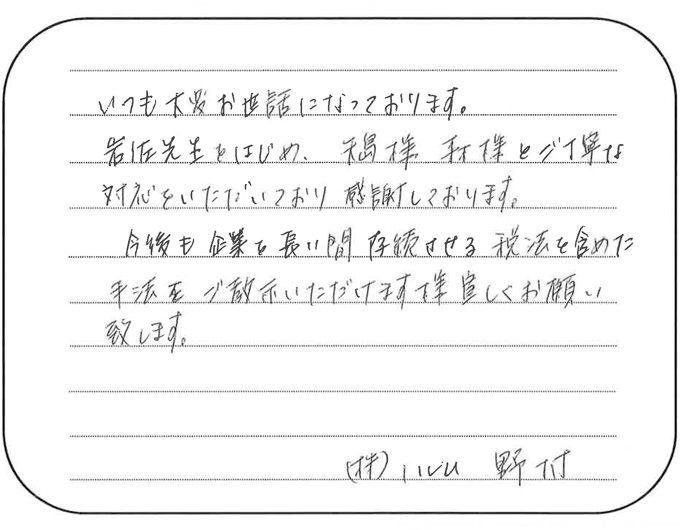 いつも大変お世話になっております。
岩佐先生をはじめ、福様 林様とご丁寧な
対応をいただいており感謝しております。
今後も企業を長い間存続させる税法を含めた
手法をご教示いただけます様宜しくお願い
致します。
(株) 野付